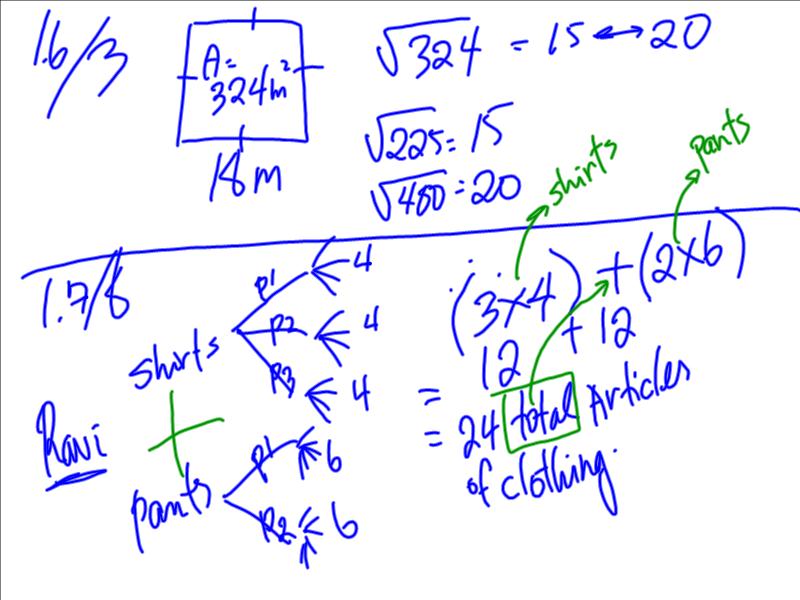 1.6/3
A= 324m²
18 m
√324 = 15 ↔ 20
√225 = 15
√400 = 20
shirts
pants
1.7/8
shirts
P1 4
P2 4
P3 4
Ravi
+
pants
P1 6
P2 6
(3×4) + (2×6)
= 12 + 12
= 24 total Articles
of clothing.